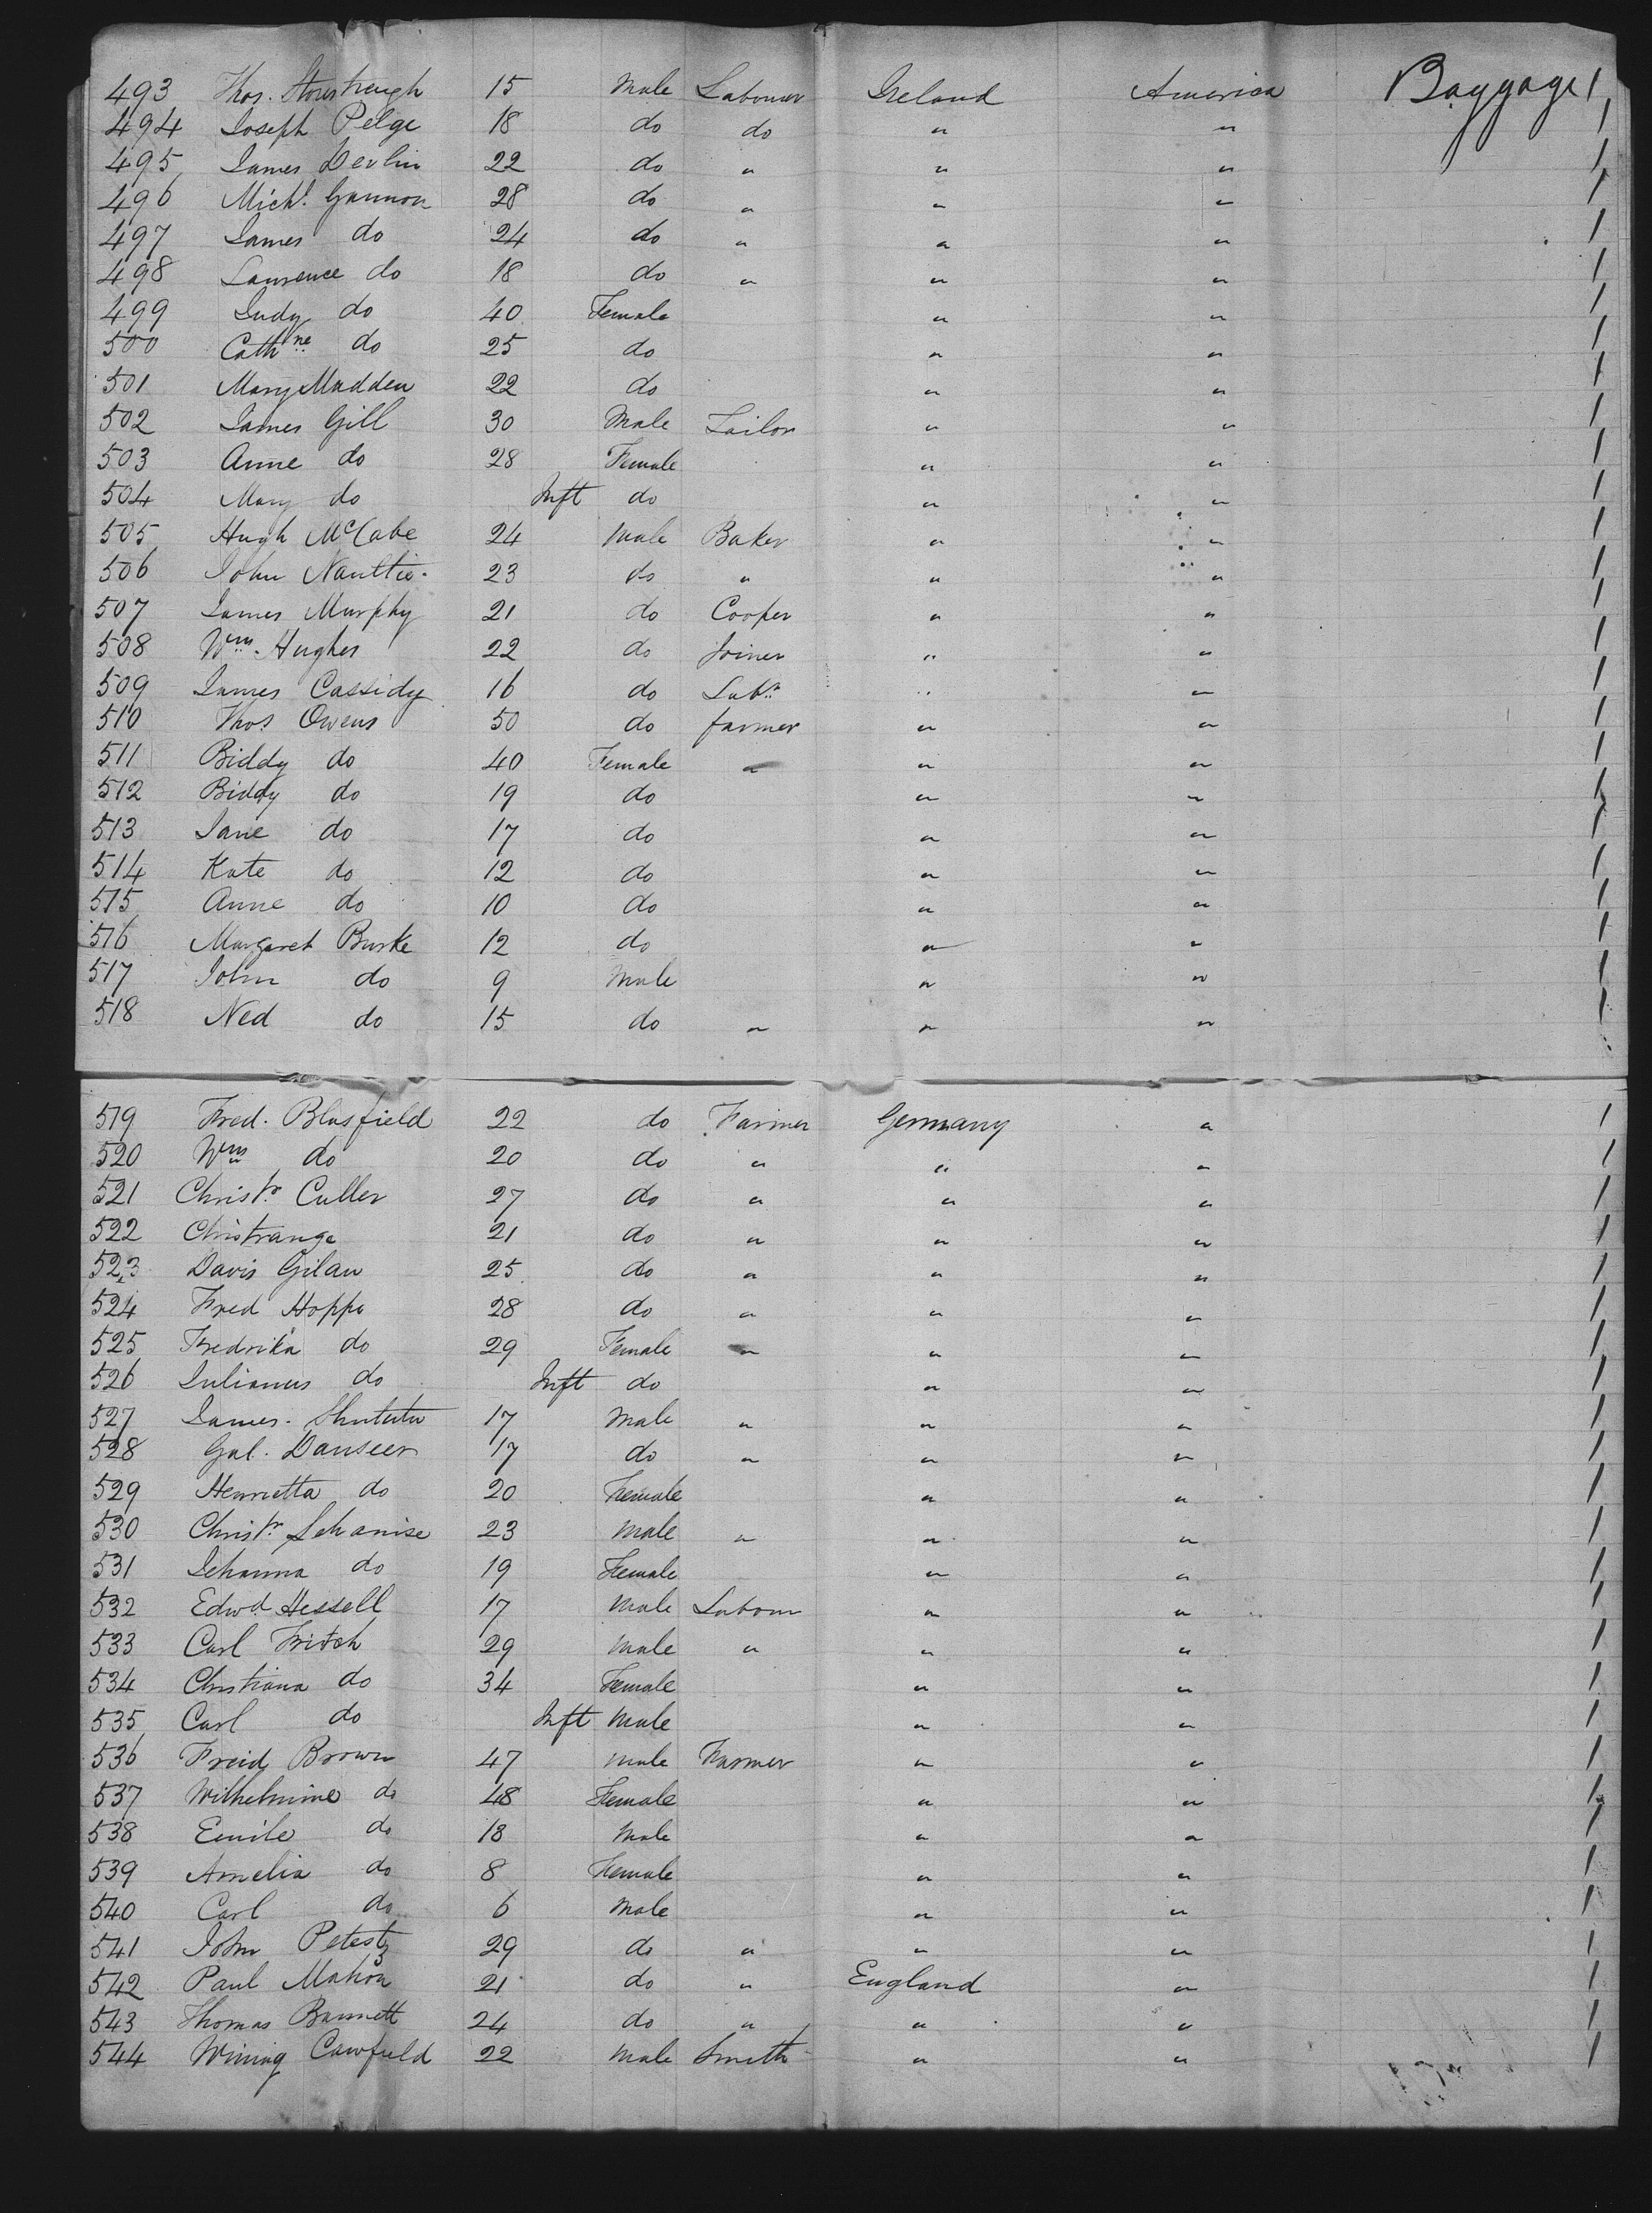 493 Thos. 15 Male Labourer Ireland America Baggage 1
494 Joseph Pelge 18 do do " " 1
495 James Devlin 22 do " " " 1
496 Michl. Gannon 28 do " " " 1
497 James do 24 do " " " 1
498 Laurence do 18 do " " " 1
499 Judy do 40 Female " " 1
500 Cathne do 25 do " " 1
501 Mary Madden 22 do " " 1
502 James Gill 30 Male Tailor " " 1
503 Anne do 28 Female " " 1
504 Mary do Inft do " " 1
505 Hugh McCabe 24 Male Baker " " 1
506 John 23 do " " " 1
507 James Murphy 21 do Cooper " " 1
508 Wm. Hughes 22 do Joiner " " 1
509 James Cassidy 16 do Labr " " 1
510 Thos Owens 50 do farmer " " 1
511 Biddy do 40 Female " " 1
512 Biddy do 19 do " " 1
513 Jane do 17 do " " 1
514 Kate do 12 do " " 1
515 Anne do 10 do " " 1
516 Margaret Burke 12 do " " 1
517 John do 9 Male " " 1
518 Ned do 15 do " " " 1
519 Fred. Blasfield 22 do Farmer Germany " 1
520 Wm do 20 do " " " 1
521 Christr. Culler 27 do " " " 1
522 Christrange 21 do " " " 1
523 Davis Gilau 25 do " " " 1
524 Fred Hoppe 28 do " " " 1
525 Fredrika do 29 Female " " 1
526 Julianus do Inft do " " 1
527 James. 17 Male " " " 1
528 Gal. Danseer 17 do " " " 1
529 Henrietta do 20 Female " " 1
530 Christr. Schanise 23 Male " " " 1
531 Jehanna do 19 Female " " 1
532 Edwd Hessell 17 Male Labour " " 1
533 Carl Fritch 29 Male " " " 1
534 Christiana do 34 Female " " 1
535 Carl do Inft Male " " 1
536 Freid Brown 47 Male Farmer " " 1
537 Wilhelmine do 48 Female " " 1
538 Emile do 18 Male " " 1
539 Amelia do 8 Female " " 1
540 Carl do 6 Male " " 1
541 John Petestz 29 do " " " 1
542 Paul Mahon 21 do " England " 1
543 Thomas Bannett 24 do " " " 1
544 Wining Cawfield 22 Male Smith " " 1